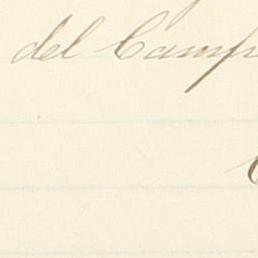 del Camp